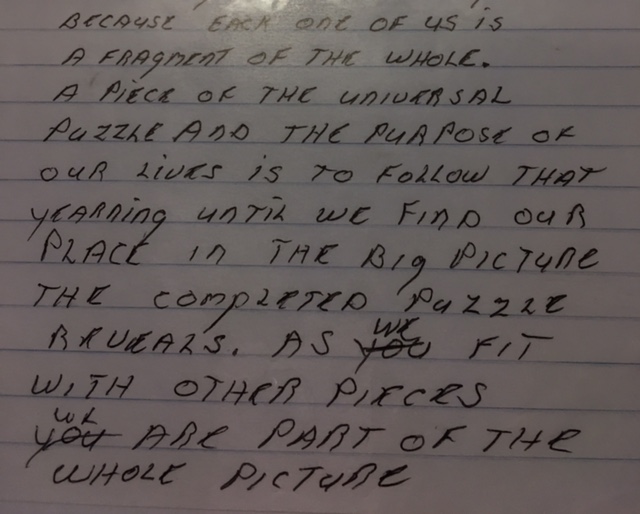 BECAUSE EACH ONE OF US IS
A FRAGMENT OF THE WHOLE.
A PIECE OF THE UNIVERSAL
PUZZLE AND THE PURPOSE OF
OUR LIVES IS TO FOLLOW THAT
YEARNING UNTIL WE FIND OUR
PLACE IN THE BIG PICTURE
THE COMPLETED PUZZLE
REVEALS. AS WE FIT
WITH OTHER PIECES
WE ARE PART OF THE
WHOLE PICTURE